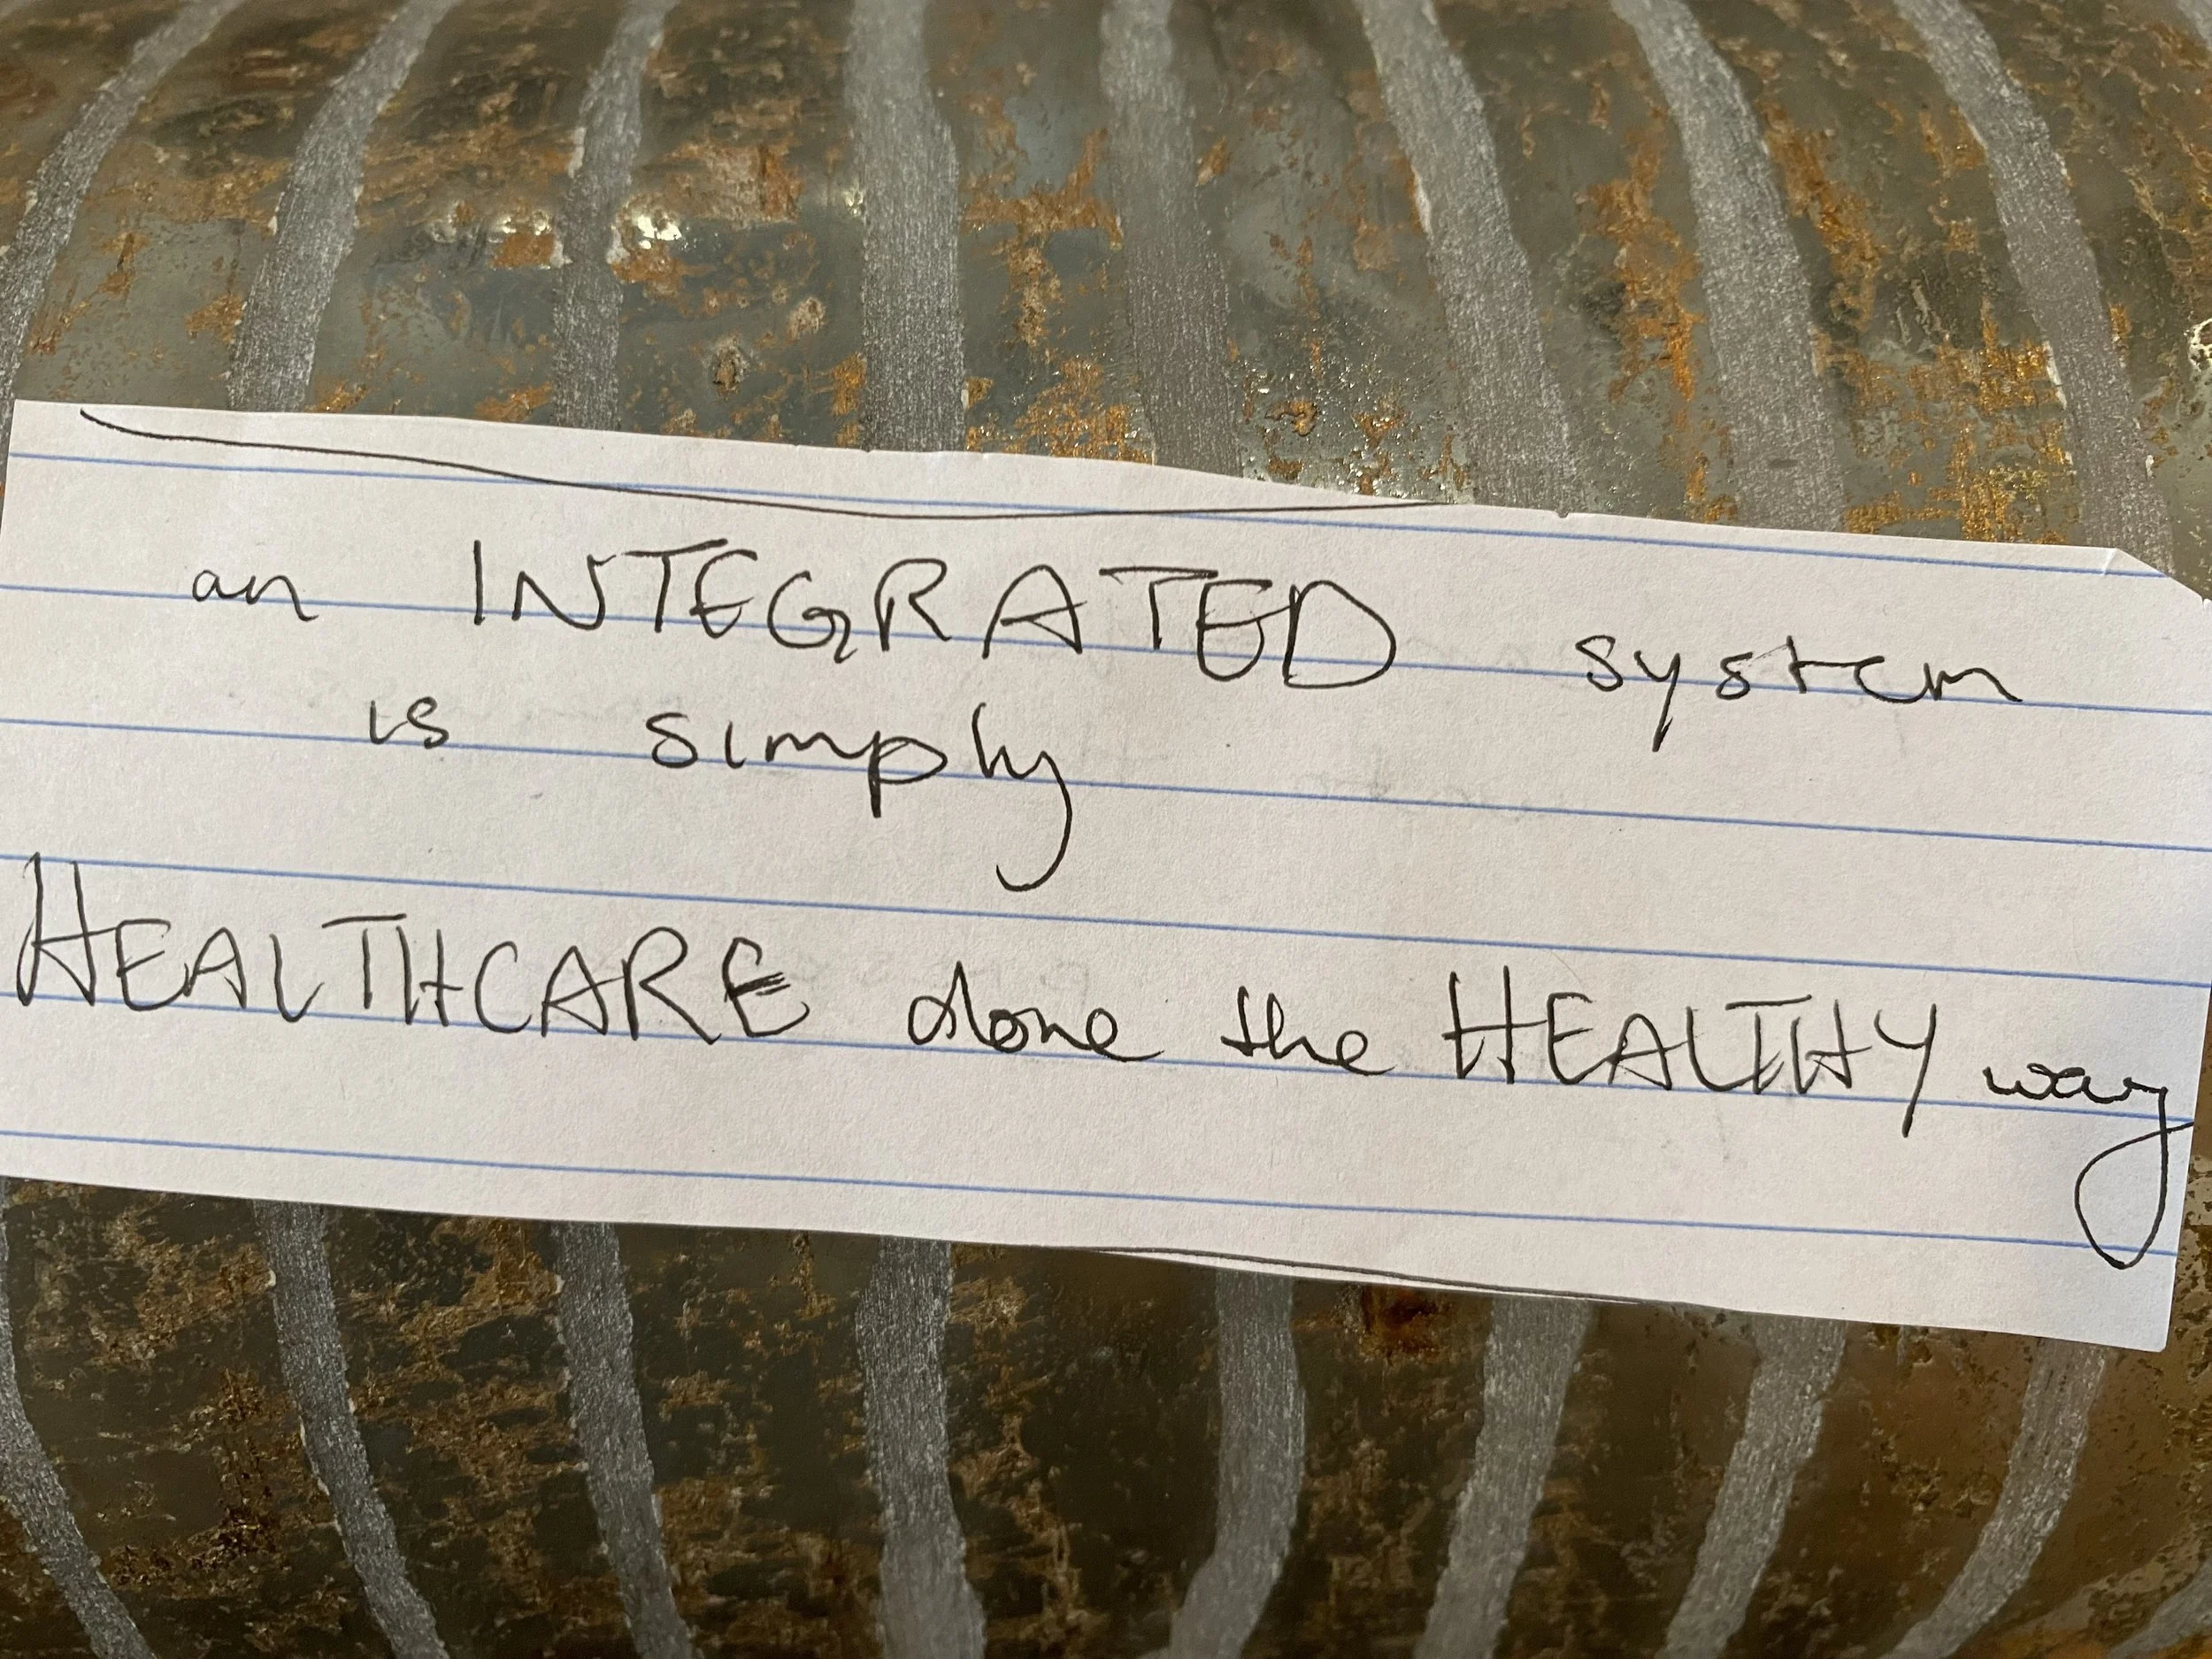 an INTEGRATED system
is simply
HEALTHCARE done the HEALTHY way